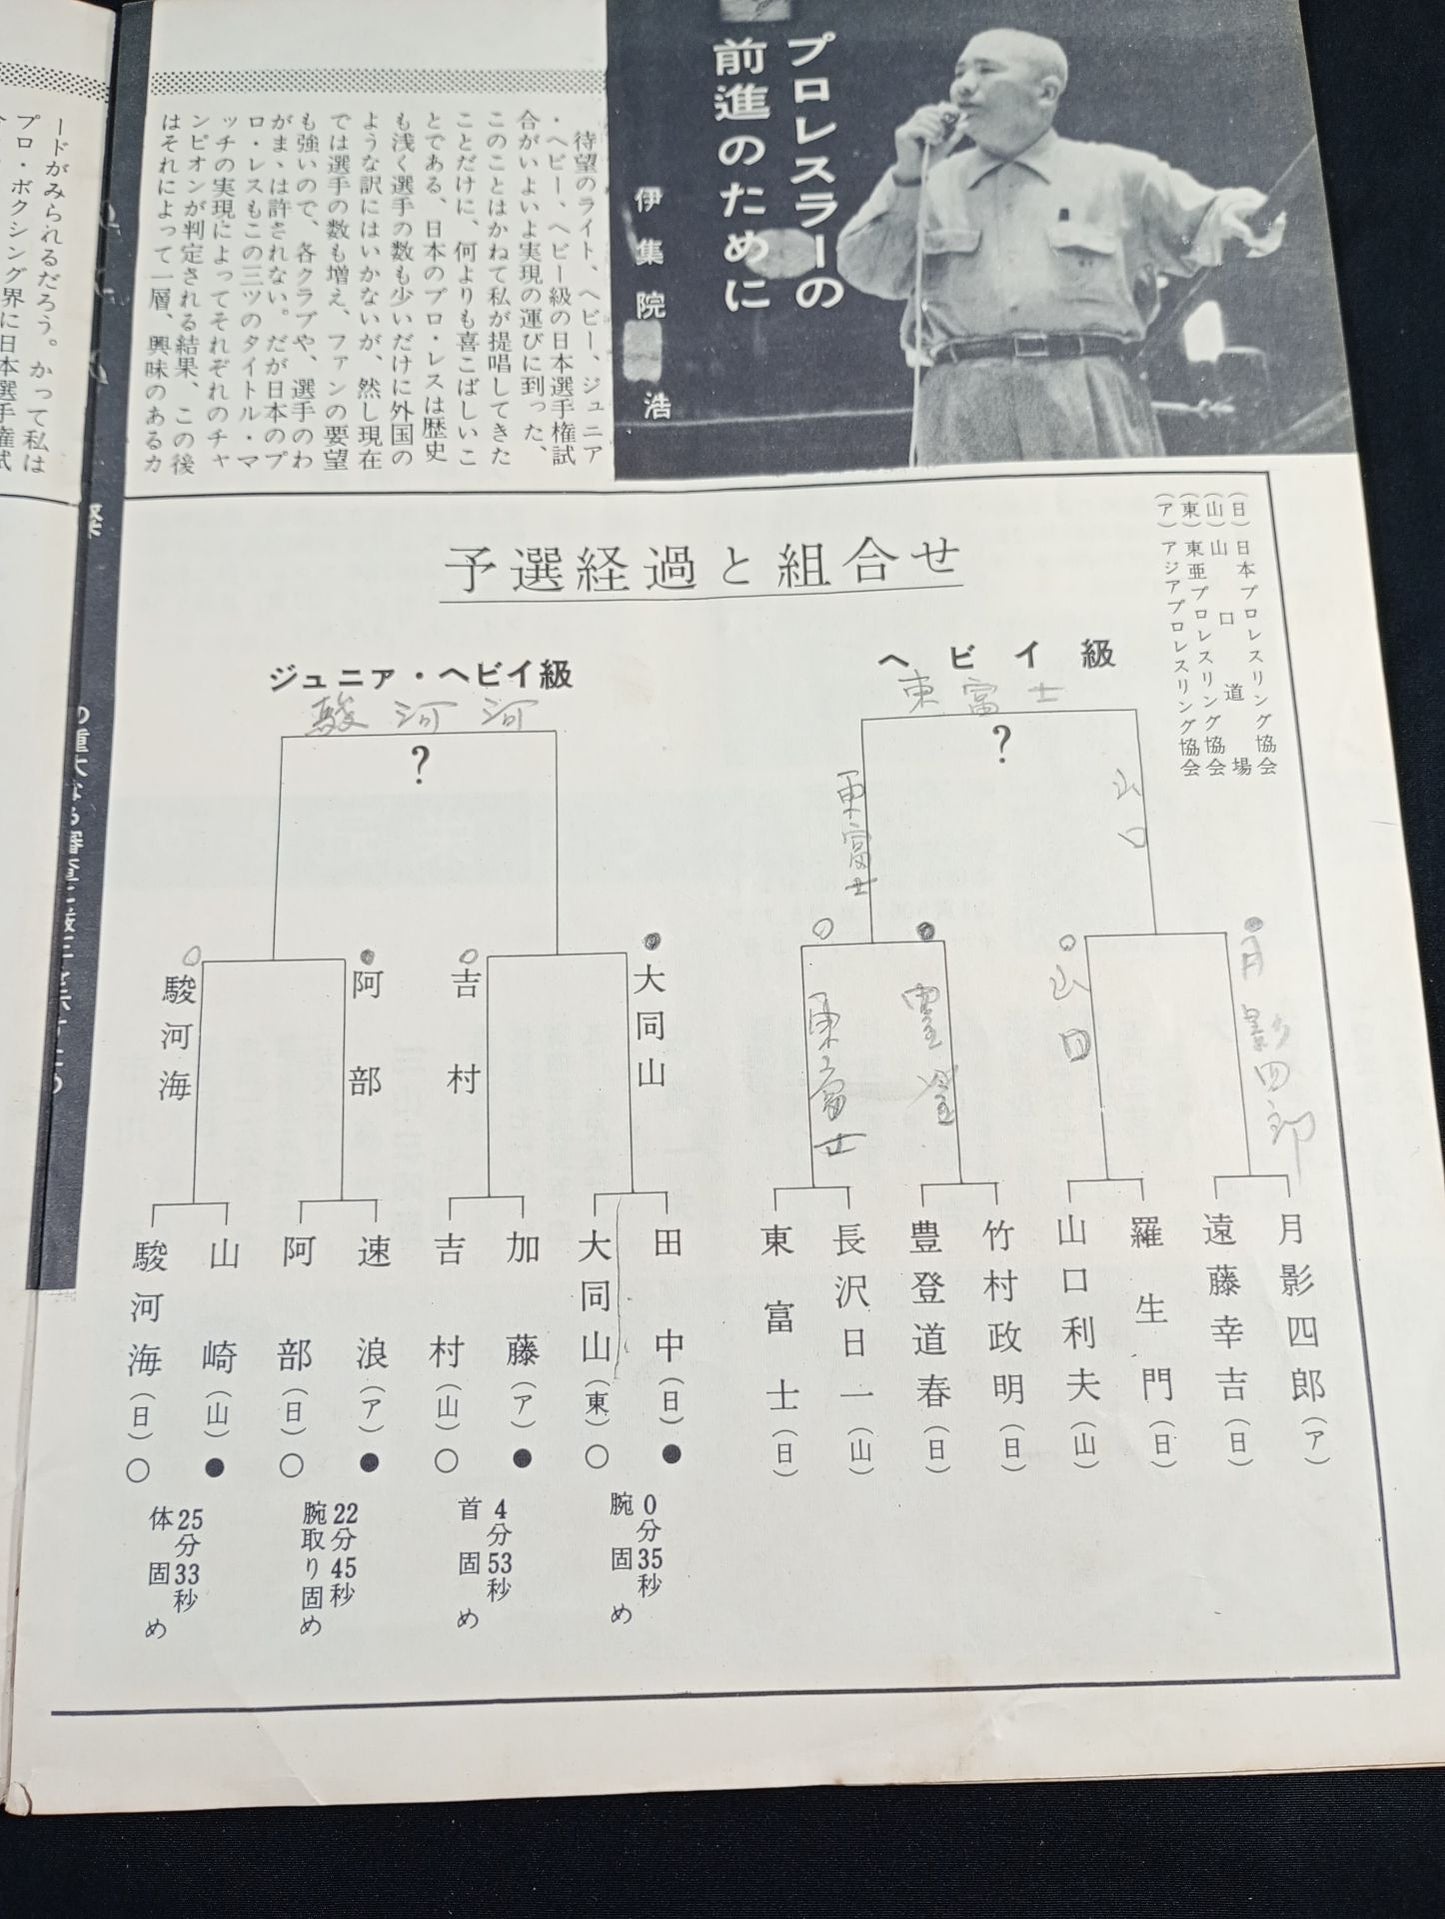 プロレスラーの
前進のために
伊集院浩
待望のライト、ヘビー、ジュニア
・ヘビー、ヘビー級の日本選手権試
合がいよいよ実現の運びに到った、
このことはかねて私が提唱してきた
ことだけに、何よりも喜こばしいこ
とである、日本のプロ・レスは歴史
も浅く選手の数も少いだけに外国の
ような訳にはいかないが、然し現在
では選手の数も増え、ファンの要望
も強いので、各クラブや、選手のわ
がまゝは許されない。だが日本のプ
ロ・レスもこの三ツのタイトル・マ
ッチの実現によってそれぞれのチャ
ンピオンが判定される結果、この後
はそれによって一層、興味のあるカ
ードがみられるだろう。かって私は
プロ・ボクシング界に日本選手権試
予選経過と組合せ
(日)日本プロレスリング協会
(山)山口道場
(東)東亜プロレスリング協会
(ア)アジアプロレスリング協会
ヘビイ級
東富士
?
山口
東富士
月影四郎
山口
豊登
東富士
月影四郎(ア)
遠藤幸吉(日)
羅生門(日)
山口利夫(山)
竹村政明(日)
豊登道春(日)
長沢日一(山)
東富士(日)
ジュニァ・ヘビイ級
駿河河
?
大同山
吉村
阿部
駿河海
田中(日)●
大同山(東)○
0分35秒
腕固め
加藤(ア)●
吉村(山)○
4分53秒
首固め
速浪(ア)●
阿部(日)○
22分45秒
腕取り固め
山崎(山)●
駿河海(日)○
25分33秒
体固め